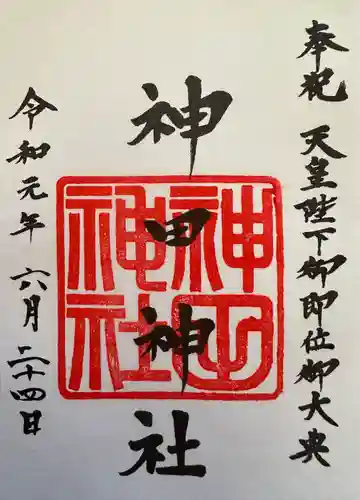 奉祝 天皇陛下御即位御大典
神田神社
神田神社
令和元年 六月二十四日